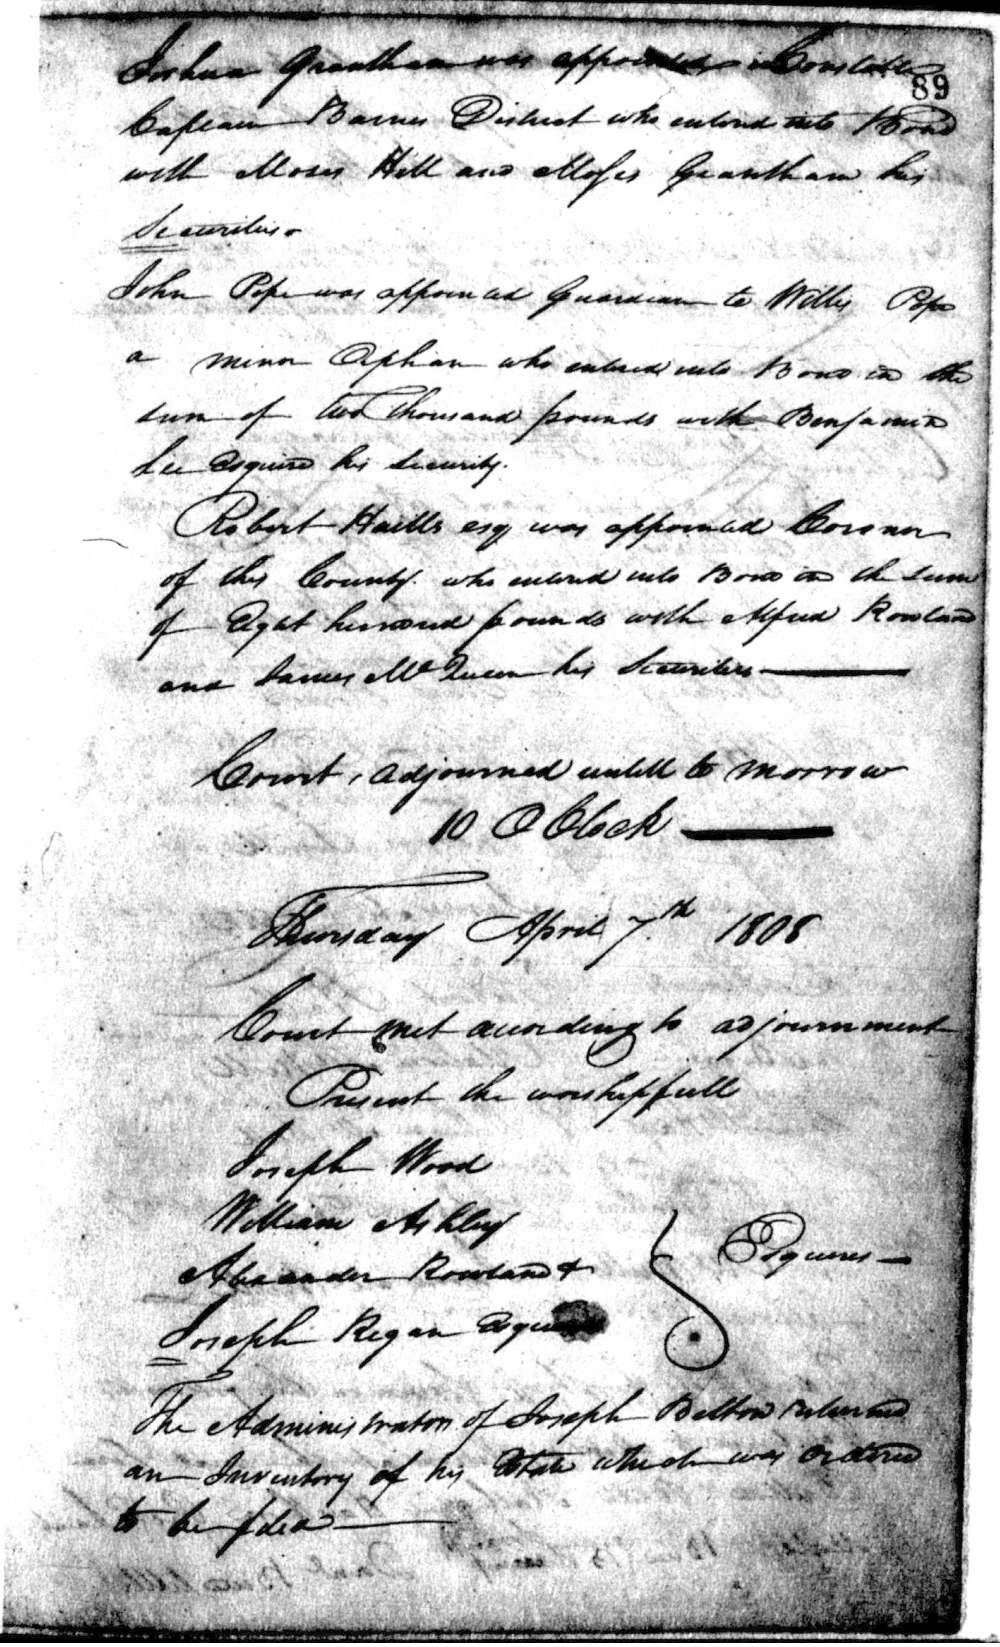 Joshua Grantham was appointed in Constable
89
Captain Barnes District who enterd into Bond
with Moses Hill and Moses Grantham his
Securities
John Pope was appointed Guardian to Willis Pope
a minor Orphan who entered into Bond in the
sum of two Thousand pounds with Benjamin
Lee Esquire his Security.
Robert Hails esq was appointed Coroner
of this County. who enterd into Bond in the sum
of Eght hundred pounds with Alfred Rowland
and James McQueen his Securities
Court, adjourned untill to morrow
10 O Clock
Thursday April 7th 1808
Court met according to adjournment
Present the worshipfull
Joseph Wood
William Ashley
Alexander Rowland &
Esquires
Joseph Regan Esquire
The Administrators of Joseph Belton returned
an Inventory of his Estate which was ordered
to be filed